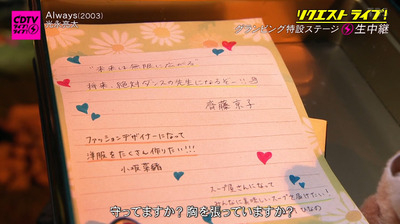 CDTV
ライブ!
ライブ!
Always(2003)
光永亮太
リクエストライブ!
グランピング特設ステージ 生中継
"未来は無限に広がる"
将来、絶対ダンスの先生になるぞー!!
齊藤 京子
ファッションデザイナーになって
洋服をたくさん作りたい!!!
小坂菜緒
スープ屋さんになって
みんなに美味しいスープを届けたい!
ひなの
守ってますか?胸を張っていますか?